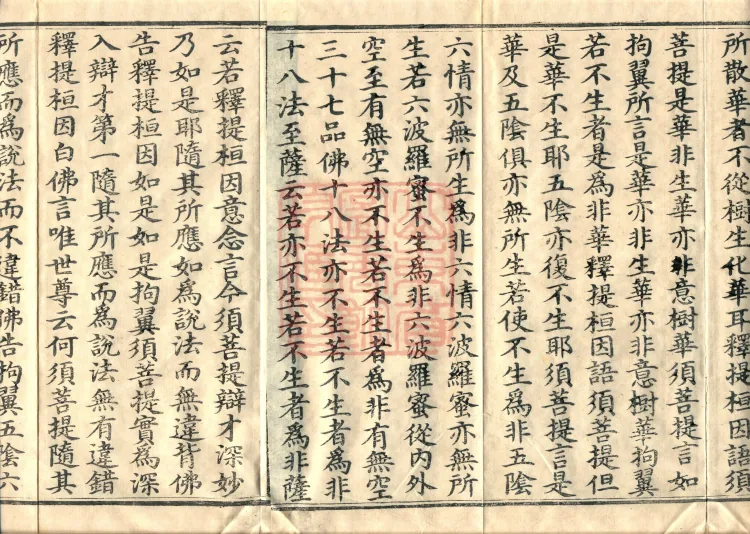 所散華者不從樹生化華耳釋提桓因語須
菩提是華非生華亦非意樹華須菩提言如
拘翼所言是華亦非生華亦非意樹華拘翼
若不生者是爲非華釋提桓因語須菩提但
是華不生耶五陰亦復不生耶須菩提言是
華及五陰俱亦無所生若使不生爲非五陰
六情亦無所生爲非六情六波羅蜜亦無所
生若六波羅蜜不生爲非六波羅蜜從內外
空至有無空亦不生若不生者爲非有無空
三十七品佛十八法亦不生若不生者爲非
十八法至薩云若亦不生若不生者爲非薩
云若釋提桓因意念言今須菩提辯才深妙
乃如是耶隨其所應如爲說法而無違背佛
告釋提桓因如是如是拘翼須菩提實爲深
入辯才第一隨其所應而爲說法無有違錯
釋提桓因白佛言唯世尊云何須菩提隨其
所應而爲說法而不違錯佛告拘翼五陰六